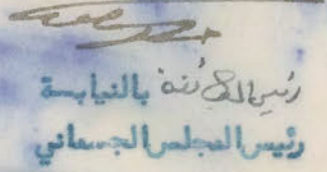 رئيس اللجنة بالنيابة
رئيس المجلس الجسماني